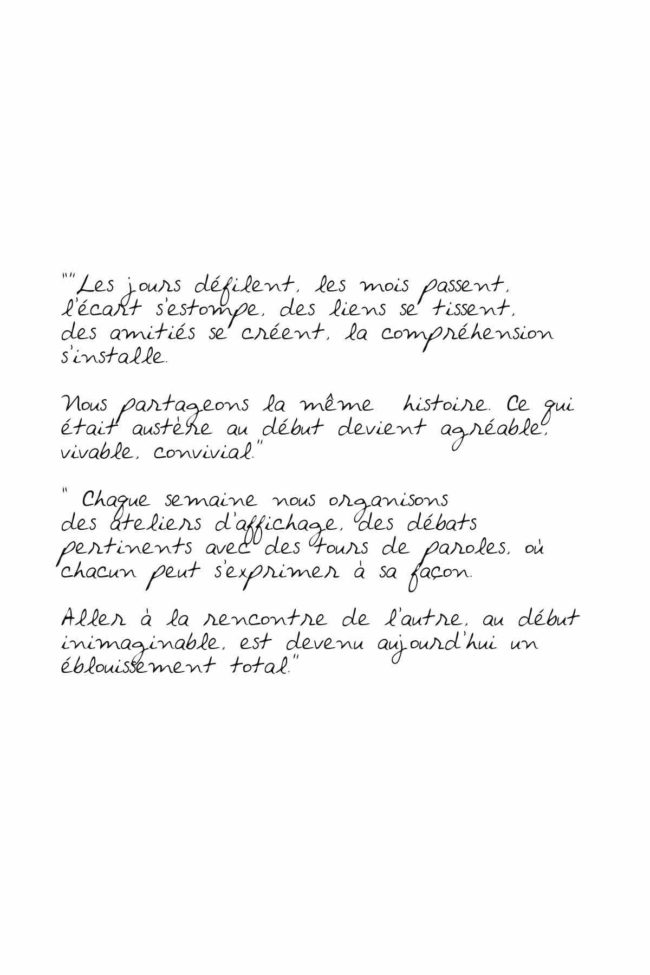 ""Les jours défilent, les mois passent,
l'écart s'estompe, des liens se tissent,
des amitiés se créent, la compréhension
s'installe.
Nous partageons la même histoire. Ce qui
était austère au début devient agréable,
vivable, convivial."
" Chaque semaine nous organisons
des ateliers d'affichage, des débats
pertinents avec des tours de paroles, où
chacun peut s'exprimer à sa façon.
Aller à la rencontre de l'autre, au début
inimaginable, est devenu aujourd'hui un
éblouissement total."